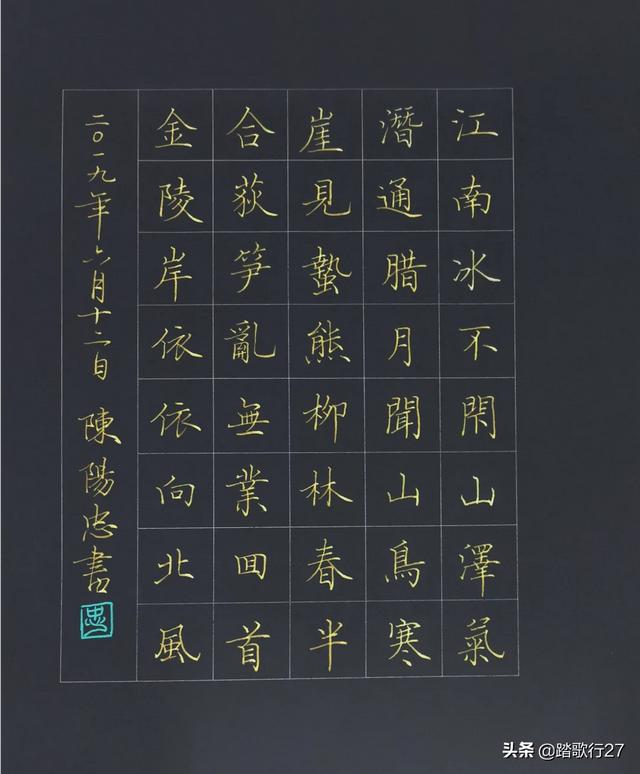 江南冰不閉山澤氣
潛通腊月聞山鳥寒
崖見蟄熊柳林春半
合荻笋亂無業囬首
金陵岸依依向北風
二〇一九年六月十二日 陳陽忠書
忠
头条 @踏歌行27